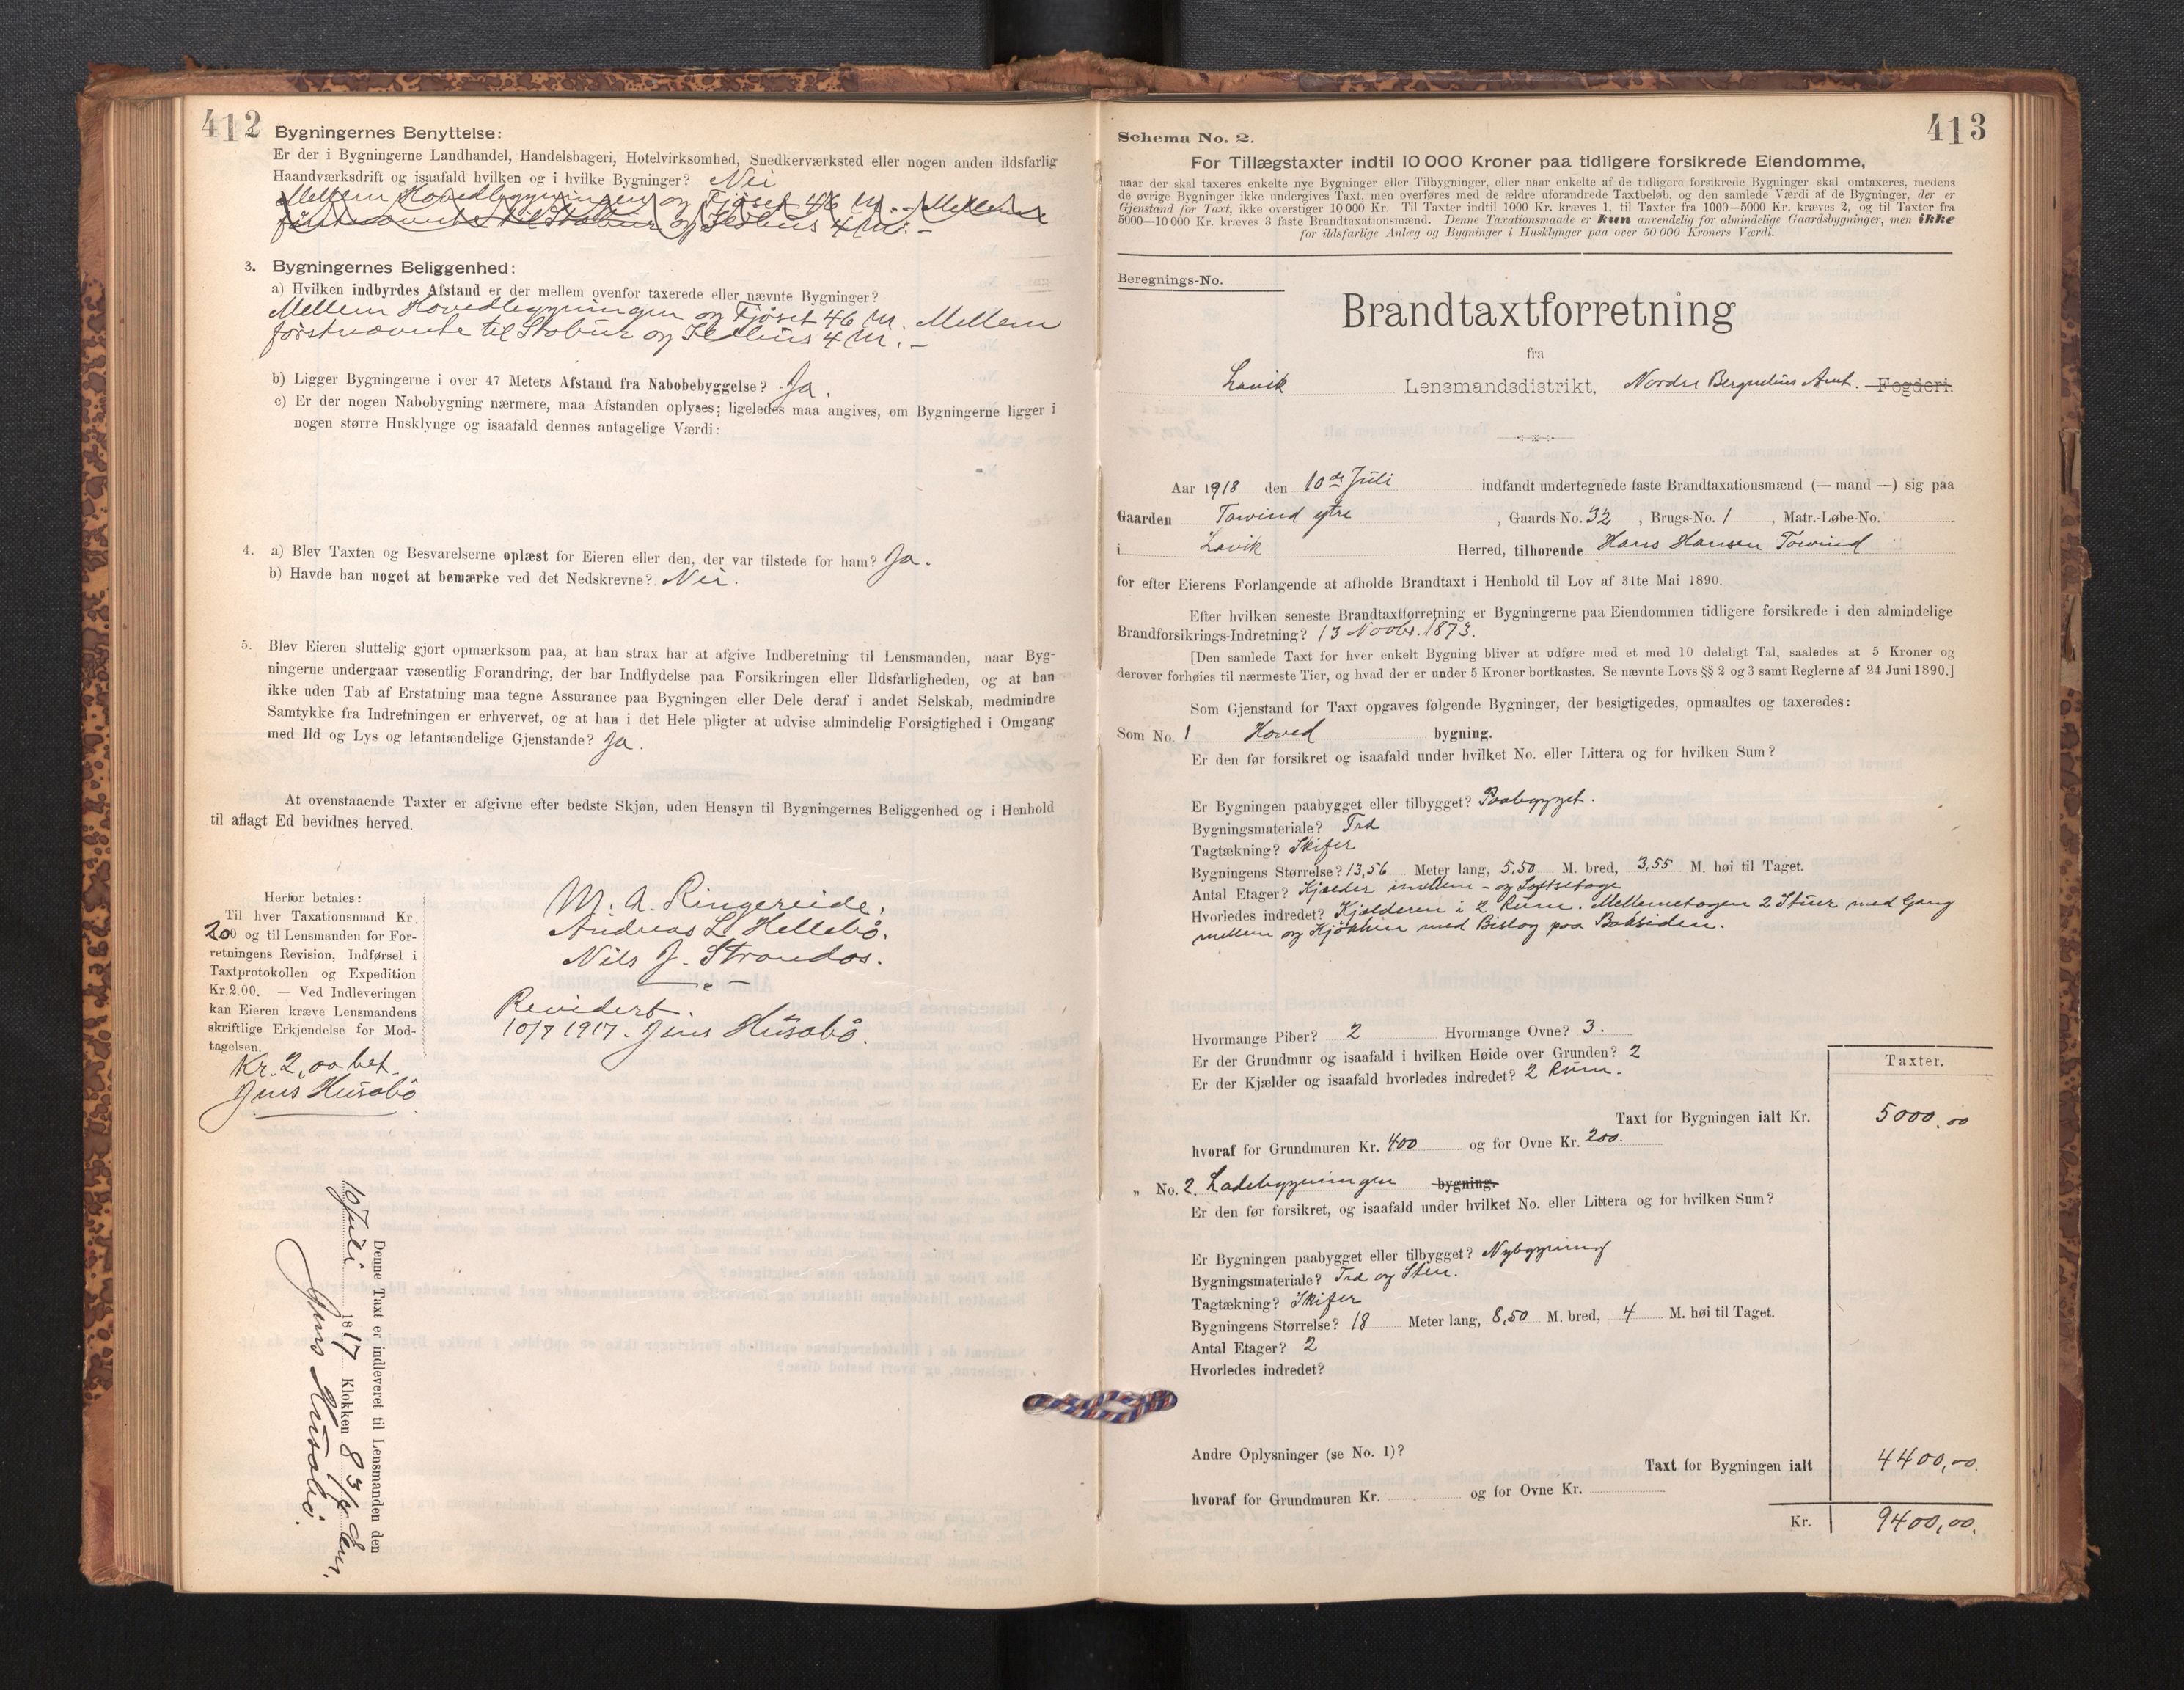 412
Bygningernes Benyttelse:
Er der i Bygningerne Landhandel, Handelsbageri, Hotelvirksomhed, Snedkerværksted eller nogen anden ildsfarlig
Haandværksdrift og isaafald hvilken og i hvilke Bygninger? Nei
Mellem Hovedbygningen og Fjøset 46 M. - Mellem
førstnævnte til Stabur og Ildhus 4 M. -
3. Bygningernes Beliggenhed:
a) Hvilken indbyrdes Afstand er der mellem ovenfor taxerede eller nævnte Bygninger?
Mellem Hovedbygningen og Fjöset 46 M. Mellem
førstnævnte til Stabur og Ildhus 4 M. -
b) Ligger Bygningerne i over 47 Meters Afstand fra Nabobebyggelse? Ja.
c) Er der nogen Nabobygning nærmere, maa Afstanden oplyses; ligeledes maa angives, om Bygningerne ligger i
nogen større Husklynge og isaafald dennes antagelige Værdi:
4. a) Blev Taxten og Besvarelserne oplæst for Eieren eller den, der var tilstede for ham? Ja.
b) Havde han noget at bemærke ved det Nedskrevne? Nei.
5. Blev Eieren sluttelig gjort opmærksom paa, at han strax har at afgive Indberetning til Lensmanden, naar Byg-
ningerne undergaar væsentlig Forandring, der har Indflydelse paa Forsikringen eller Ildsfarligheden, og at han
ikke uden Tab af Erstatning maa tegne Assurance paa Bygningen eller Dele deraf i andet Selskab, medmindre
Samtykke fra Indretningen er erhvervet, og at han i det Hele pligter at udvise almindelig Forsigtighed i Omgang
med Ild og Lys og letantændelige Gjenstande? Ja.
At ovenstaaende Taxter er afgivne efter bedste Skjøn, uden Hensyn til Bygningernes Beliggenhed og i Henhold
til aflagt Ed bevidnes herved.
Herfor betales:
Til hver Taxationsmand Kr.
2.00 og til Lensmanden for For-
retningens Revision, Indførsel i
Taxtprotokollen og Expedition
Kr. 2.00. — Ved Indleveringen
kan Eieren kræve Lensmandens
skriftlige Erkjendelse for Mod-
tagelsen.
Kr. 2,00 bet.
Jens Husabö
M. A. Ringereide,
Andreas L. Hellebö.
Nils J. Strandos.
Revidert.
10/7 1917. Jens Husabö.
Denne Taxt er indleveret til Lensmanden den
10 Juli 1817 Klokken 8 3/4 Em.
Jens Husabö.
413
Schema No. 2.
For Tillægstaxter indtil 10 000 Kroner paa tidligere forsikrede Eiendomme,
naar der skal taxeres enkelte nye Bygninger eller Tilbygninger, eller naar enkelte af de tidligere forsikrede Bygninger skal omtaxeres, medens
de øvrige Bygninger ikke undergives Taxt, men overføres med de ældre uforandrede Taxtbeløb, og den samlede Værdi af de Bygninger, der er
Gjenstand for Taxt, ikke overstiger 10 000 Kr. Til Taxter indtil 1000 Kr. kræves 1, til Taxter fra 1000—5000 Kr. kræves 2, og til Taxter fra
5000—10 000 Kr. kræves 3 faste Brandtaxationsmænd. Denne Taxationsmaade er kun anvendelig for almindelige Gaardsbygninger, men ikke
for ildsfarlige Anlæg og Bygninger i Husklynger paa over 50 000 Kroners Værdi.
Beregnings-No.
Brandtaxtforretning
fra
Lavik Lensmandsdistrikt, Nordre Bergenhus Amt. Fogderi.
Aar 1918 den 10de Juli indfandt undertegnede faste Brandtaxationsmænd (— mand —) sig paa
Gaarden Torvind ytre, Gaards-No. 32, Brugs-No. 1, Matr.-Løbe-No.
i Lavik Herred, tilhørende Hans Hansen Torvind
for efter Eierens Forlangende at afholde Brandtaxt i Henhold til Lov af 31te Mai 1890.
Efter hvilken seneste Brandtaxtforretning er Bygningerne paa Eiendommen tidligere forsikrede i den almindelige
Brandforsikrings-Indretning? 13 Novbr. 1873.
[Den samlede Taxt for hver enkelt Bygning bliver at udføre med et med 10 deleligt Tal, saaledes at 5 Kroner og
derover forhøies til nærmeste Tier, og hvad der er under 5 Kroner bortkastes. Se nævnte Lovs §§ 2 og 3 samt Reglerne af 24 Juni 1890.]
Som Gjenstand for Taxt opgaves følgende Bygninger, der besigtigedes, opmaaltes og taxeredes:
Som No. 1 Hoved bygning.
Er den før forsikret og isaafald under hvilket No. eller Littera og for hvilken Sum?
Er Bygningen paabygget eller tilbygget? Paabygget.
Bygningsmateriale? Træ
Tagtækning? Skifer
Bygningens Størrelse? 13,56 Meter lang, 5,50 M. bred, 3,55 M. høi til Taget.
Antal Etager? Kjælder imellem - og Loftsetage
Hvorledes indredet? Kjælderen i 2 Rum. Mellemetagen 2 Stuer med Gang
mellem og Kjökken med Bislag paa Baksiden.
Hvormange Piber? 2 Hvormange Ovne? 3.
Er der Grundmur og isaafald i hvilken Høide over Grunden? 2
Er der Kjælder og isaafald hvorledes indredet? 2 Rum.
Taxter.
Taxt for Bygningen ialt Kr. 5000.00
hvoraf for Grundmuren Kr. 400 og for Ovne Kr. 200.
„ No. 2. Ladebygningen bygning.
Er den før forsikret, og isaafald under hvilket No. eller Littera og for hvilken Sum?
Er Bygningen paabygget eller tilbygget? Nybygning
Bygningsmateriale? Træ og Sten.
Tagtækning? Skifer
Bygningens Størrelse? 18 Meter lang, 8,50 M. bred, 4 M. høi til Taget.
Antal Etager? 2
Hvorledes indredet?
Andre Oplysninger (se No. 1)?
Taxt for Bygningen ialt 4400,00.
hvoraf for Grundmuren Kr. og for Ovne Kr.
Kr. 9400,00.